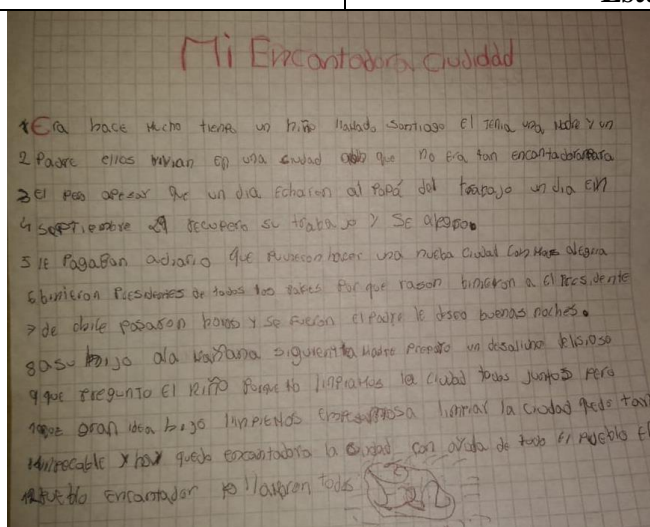 Esta
Mi Encantadora Ciudidad
1 Era hace Mucho tiempo un niño llamado Santiago El Tenia una Madre y un
2 Padre ellos vivian En una ciudad que no Era tan encantadora Para
3 El Pero apesar que un dia Echaron al Papá del trabajo un dia En
4 Septiembre 29 recupero su trabajo y SE alegro.
5 le Pagaban adiario que Pudieron hacer una nueba Ciudad Con Mas alegria
6 binieron Presidentes de todos los Paises Por que rason binieron a el Presidente
7 de chile Pasaron horas y se Fueron el Padre le deseo buenas noches.
8 asu hijo ala Mañana siguiente la Madre Preparo un desalluno delisioso
9 que Pregunto El Niño Porque No limpiamos la ciudad todos Juntos Pero
10 que gran idea hijo limpiemos limpiar la ciudad quedo tan
11 impecable y hoy queda encantadora la ciudad con aluda de todo El Pueblo El
12 Pueblo Encantador lo llamaron todos